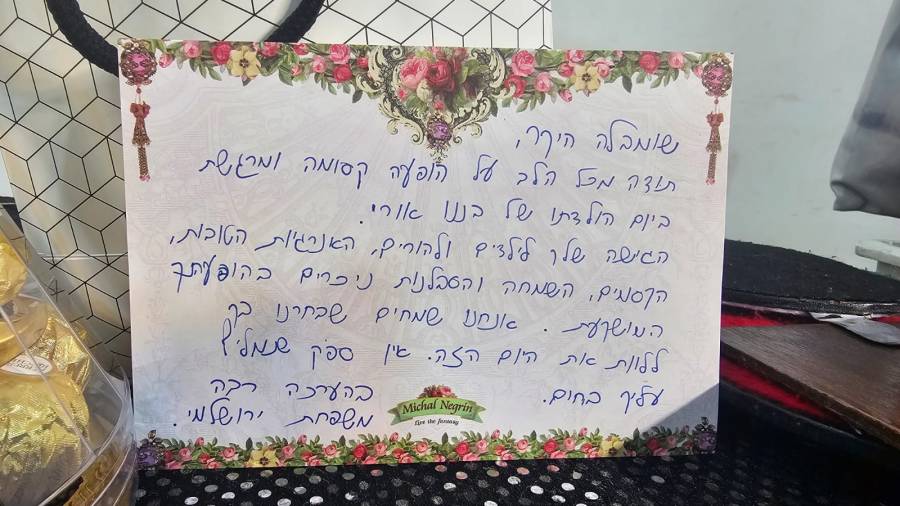 שומבלה היקר,
תודה מכל הלב על הופעה קסומה ומרגשת
ביום הולדתו של בננו אורי.
הגישה שלך לילדים ולהורים, האנרגיות הטובות,
הקסמים, השמחה והסבלנות ניכרים בהופעתך
המושקעת. אנחנו שמחים שבחרנו בך
ללוות את היום הזה. אין ספק שנמליץ
עליך בחום.
בהערכה רבה
משפחת ירושלמי.
Michal Negrin
Live the fantasy